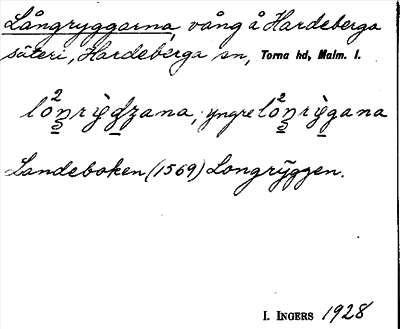 Långryggarna, vång å Hardeberga
säteri, Hardeberga sn, Torna hd, Malm. l.
lo²ŋrìɡ̱ʒana, yngre lo²ŋrìg̱ana
Landeboken (1569) Longrÿggen.
I. INGERS 1928